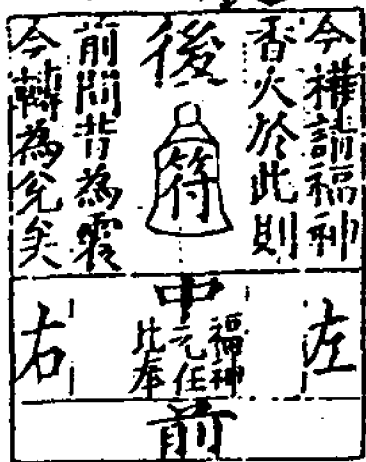 今構請福神
香火於此則
後
符
前間昔為震
今轉為兌矣
左
中
福神
元任
比奉
右
前